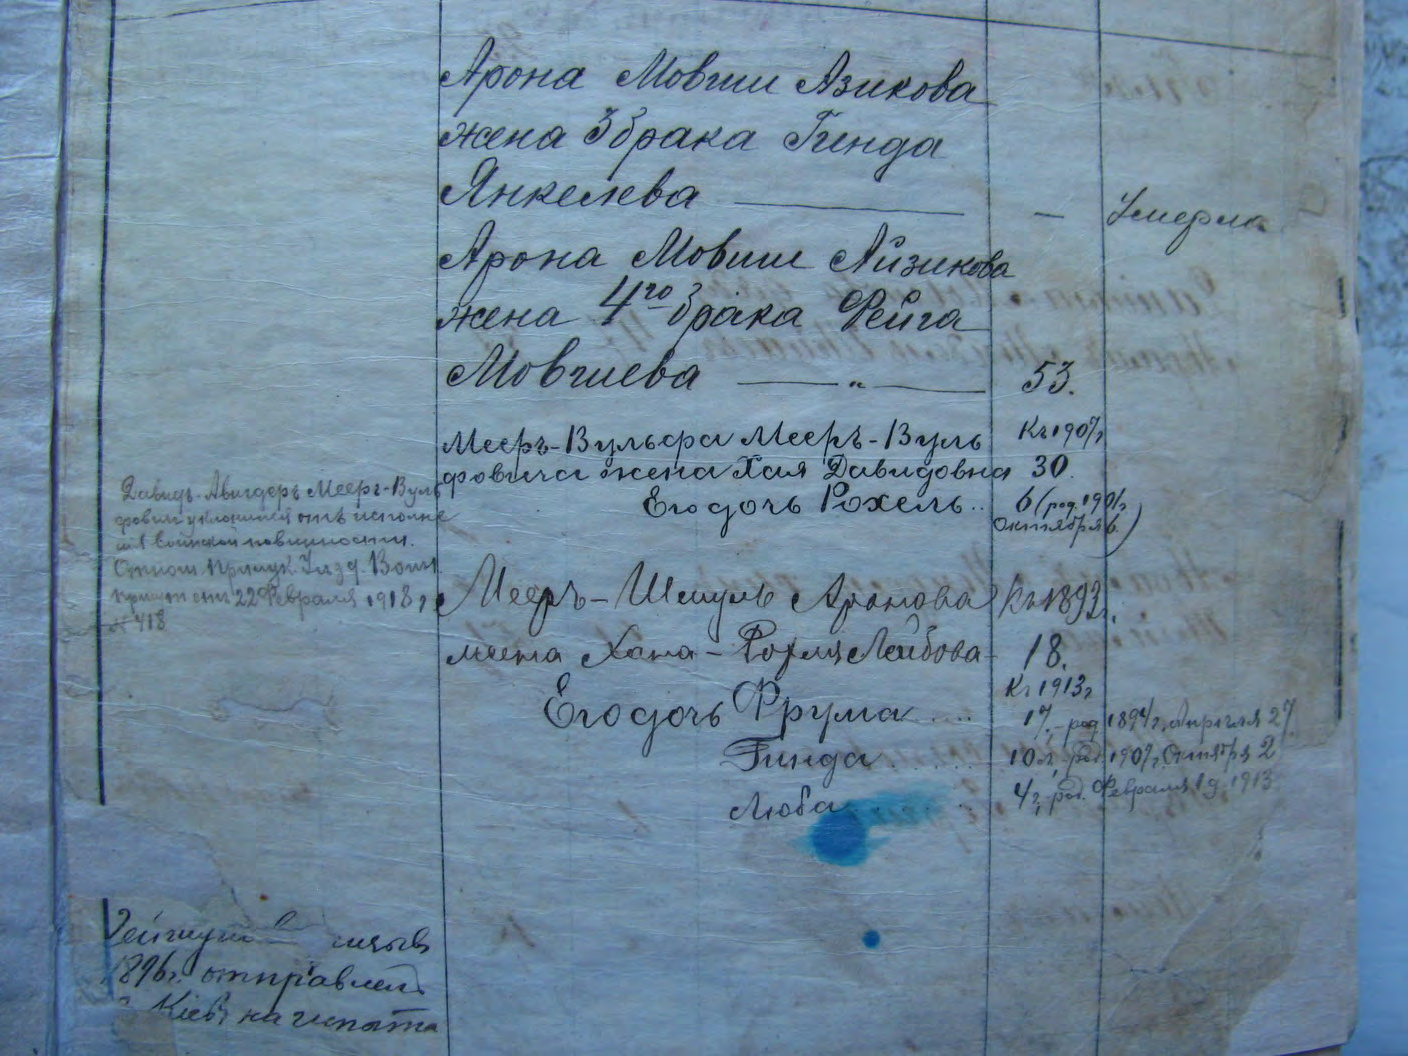 Арона Мовши Азикова
жена 3 брака Гинда
Янкелева — — Умерла
Арона Мовши Айзикова
жена 4го брака Фейга
Мовшева — „ — 53.
Мееръ-Вульфа Мееръ-Вуль Къ 1907 г.
фовича жена Хая Давидовна 30
Его дочь Рохель.. 6 (род. 1901 г.
октября 6.)
Давидъ-Авигдоръ Мееръ-Вуль
фовичъ уклонился отъ исполне
нія воинской повинности.
Отнош. Прилук. Уѣзд. Воин.
Присут. отъ 22 Февраля 1918 г.
№ 418
Мееръ-Шмуль Аронова Къ 1893 г.
жена Хана-Фрейда Лейбова 18.
Къ 1913 г.
Его дочь Фрума .... 17, род. 1894 г. Апрѣля 27
Гинда ...... 10 л., род. 1907 г. Октября 2
Люба ....... 4 г., род. Февраля 1 д. 1913
1896 г. отправлен
Кіевъ на испыта